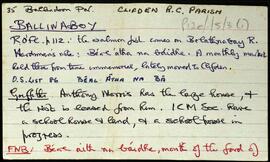 35 Ballindoon Par. CLIFDEN R.C. PARISH
BALLINABOY
ROFL. p.112. the salmon fish comes on Belathnabuy R.
Hardiman's note: Béal átha na báidhe. A monthly market
held there from time immemorial, lately moved to Clifden.
O.S. List BÉAL ÁTHA NA BÁ
Griffith: Anthony Morris has the large house, &
the Not is leased from him. ICM Soc. have
a school house & land, & a school house in
progress.
FNB: Béal na báidhe, mouth of the ford of